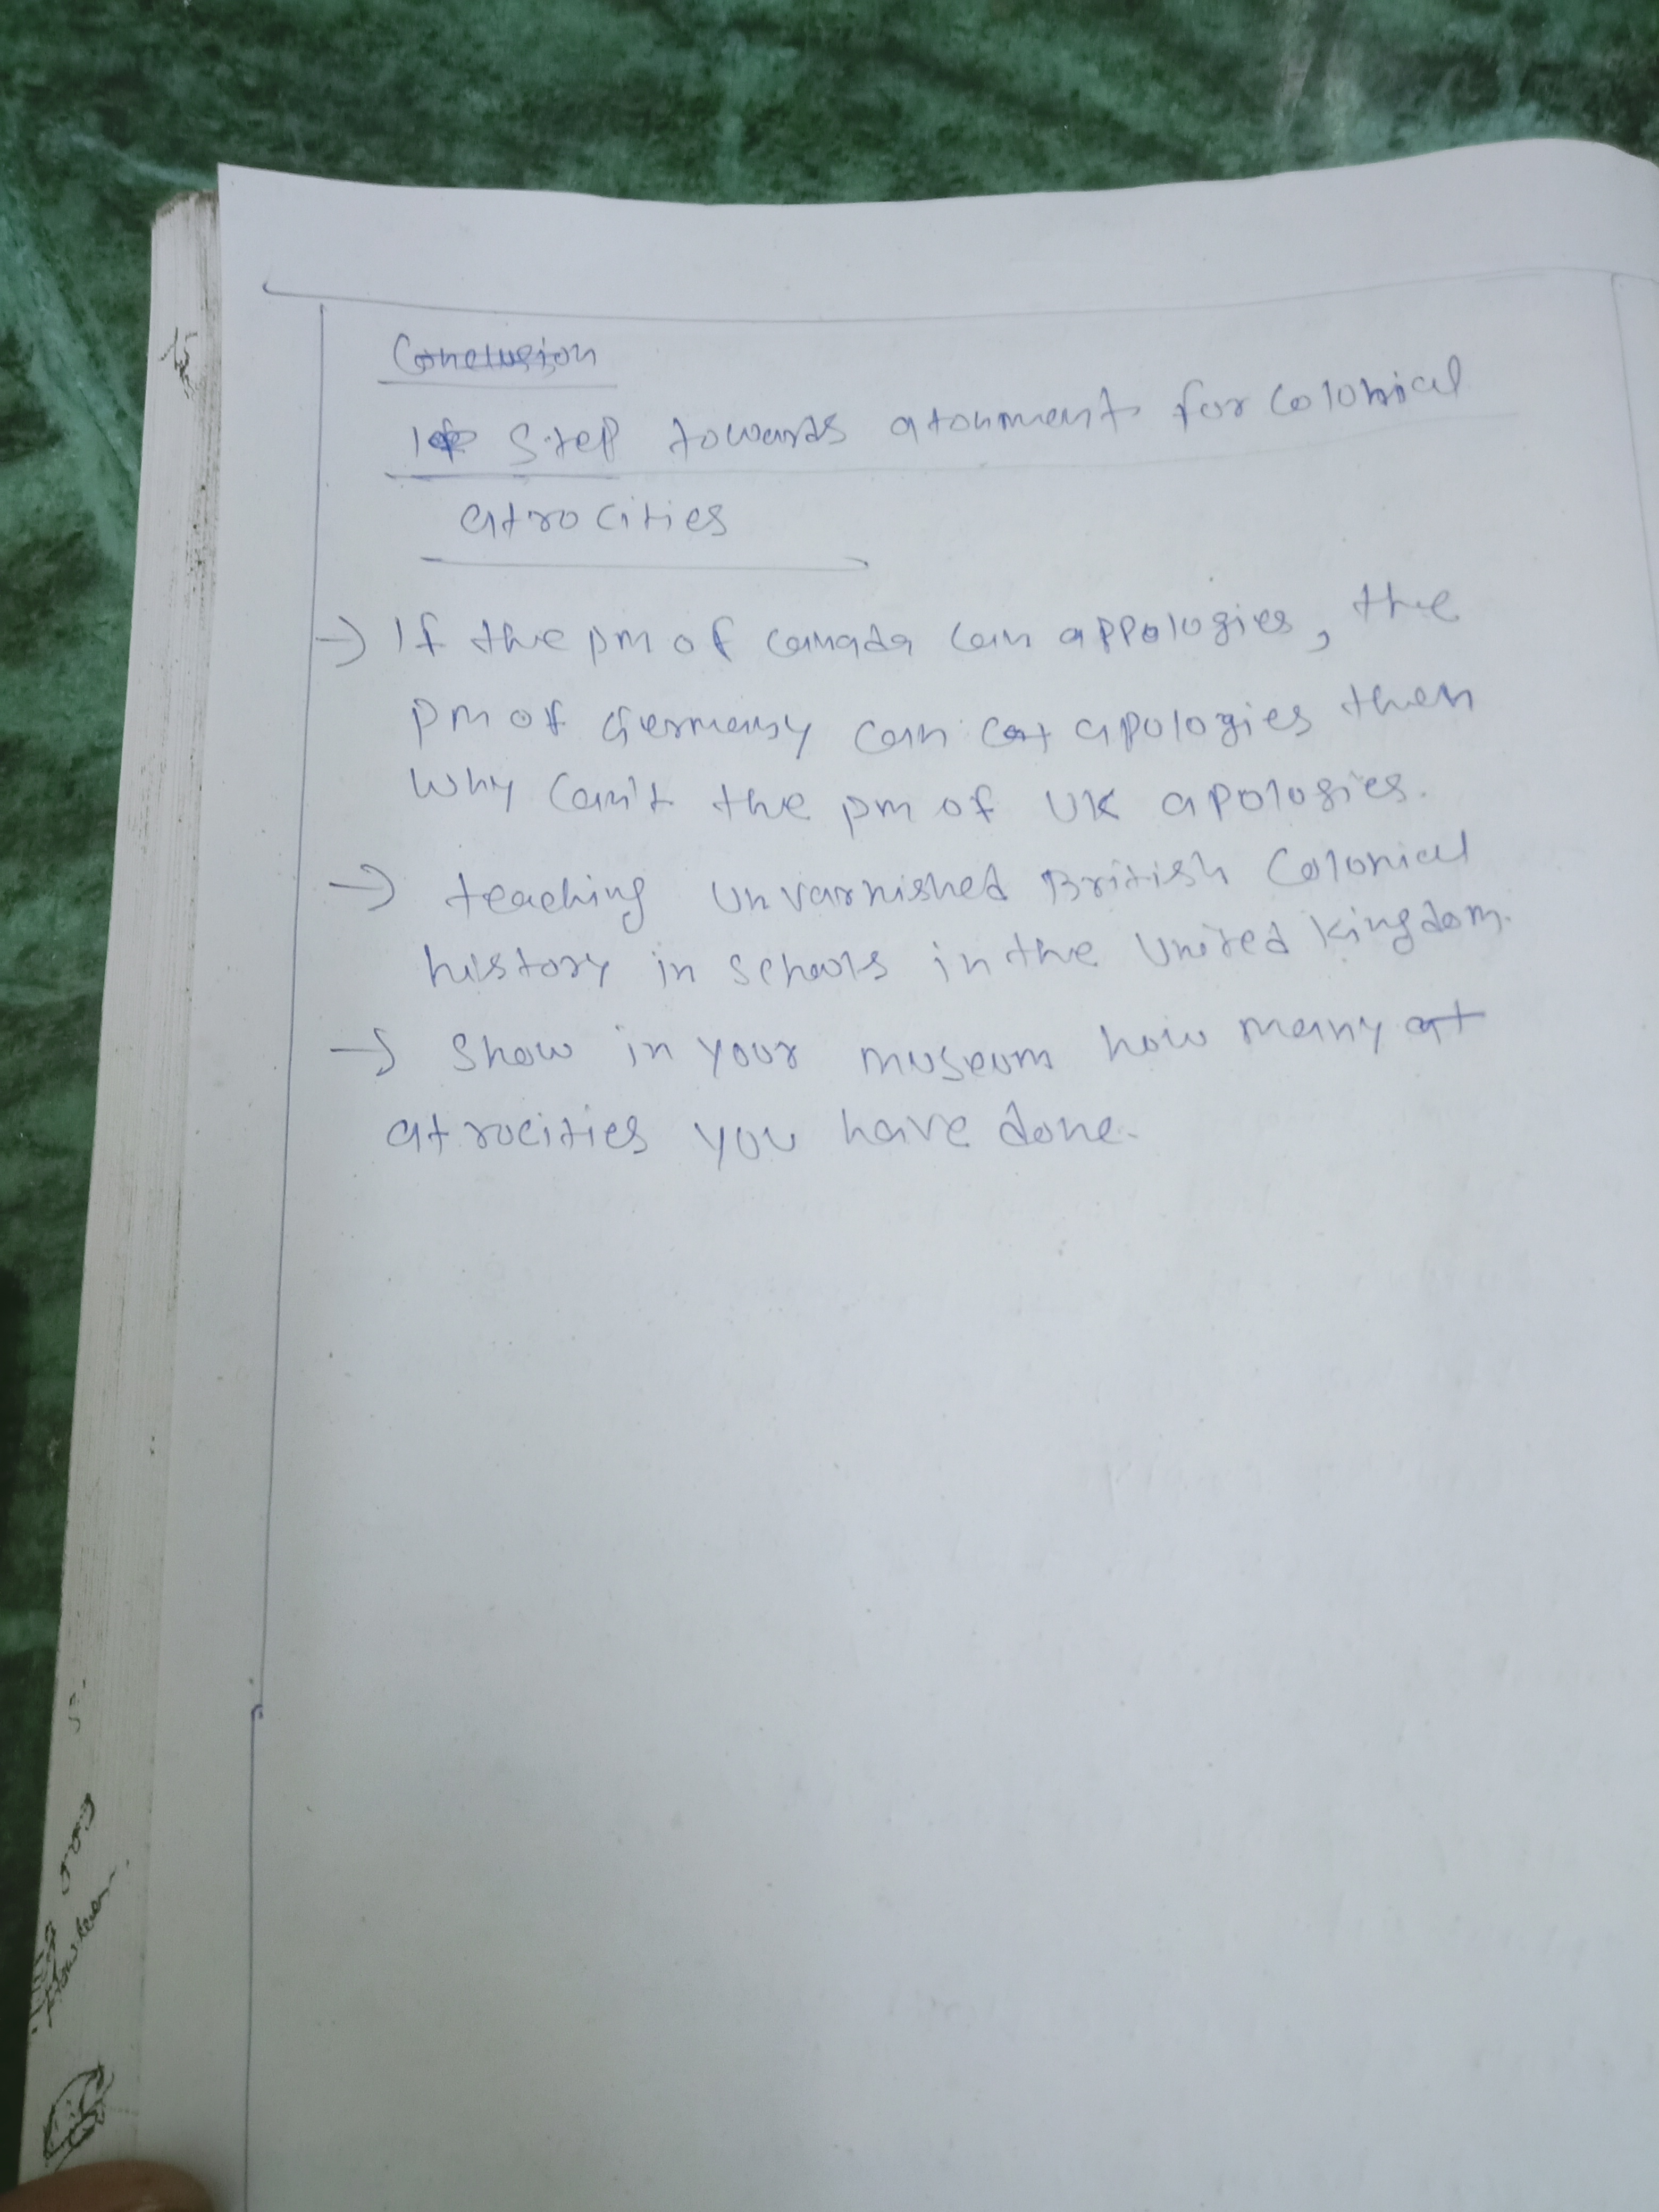 Conclusion
Step towards atonment for colonical
atrocities
→ If the pm of canada can appologies, the
pm of Germany can apologies then
why can't the pm of UK apologies.
→ teaching unvarnished British Colonical
history in schools in the United Kingdom.
→ Show in your museum how many at
atrocities you have done.